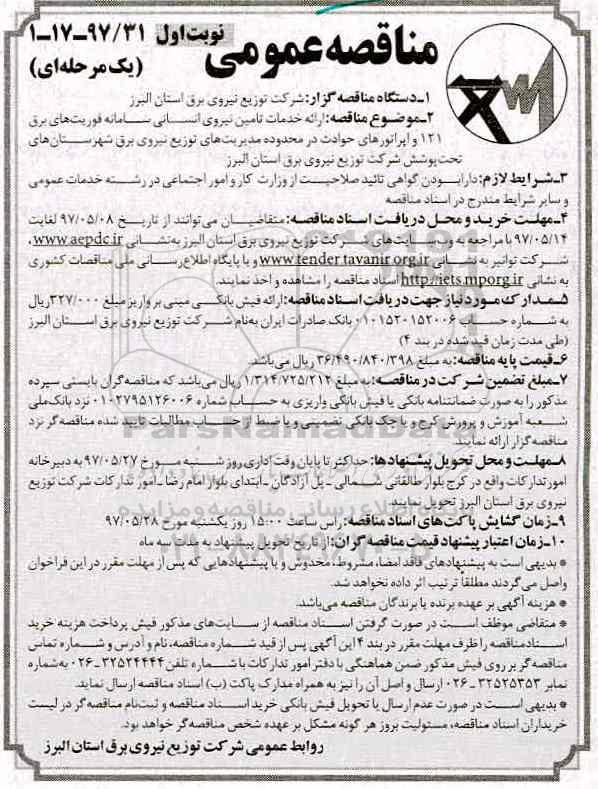 نوبت اول ۹۷/۳۱-۱۷-۱
مناقصه عمومی
(یک مرحله‌ای)
۱-دستگاه مناقصه گزار: شرکت توزیع نیروی برق استان البرز
۲-موضوع مناقصه: ارائه خدمات تامین نیروی انسانی سامانه فوریت‌های برق
۱۲۱ و اپراتورهای حوادث در محدوده مدیریت‌های توزیع نیروی برق شهرستان‌های
تحت‌پوشش شرکت توزیع نیروی برق استان البرز
۳-شرایط لازم: دارابودن گواهی تائید صلاحیت از وزارت کار و امور اجتماعی در رشته خدمات عمومی
و سایر شرایط مندرج در اسناد مناقصه
۴-مهلت خرید و محل دریافت اسناد مناقصه: متقاضیان می‌توانند از تاریخ ۹۷/۰۵/۰۸ لغایت
۹۷/۰۵/۱۴ با مراجعه به وب‌سایت‌های شرکت توزیع نیروی برق استان البرز به‌نشانی www.aepdc.ir،
شرکت توانیر به نشانی www.tender.tavanir.org.ir و یا پایگاه اطلاع‌رسانی ملی مناقصات کشوری
به نشانی http://iets.mporg.ir اسناد مناقصه را مشاهده و اخذ نمایند.
۵-مدارک مورد نیاز جهت دریافت اسناد مناقصه: ارائه فیش بانکی مبنی بر واریز مبلغ ۳۲۷/۰۰۰ ریال
به شماره حساب ۰۱۰۱۵۲۰۱۵۲۰۰۶ بانک صادرات ایران به‌نام شرکت توزیع نیروی برق استان البرز
(طی مدت زمان قید شده در بند ۴)
۶-قیمت پایه مناقصه: به مبلغ ۳۶/۴۹۰/۸۴۰/۳۹۸ ریال می‌باشد.
۷-مبلغ تضمین شرکت در مناقصه: به مبلغ ۱/۳۱۴/۷۲۵/۲۱۲ ریال می‌باشد که مناقصه‌گران بایستی سپرده
مذکور را به صورت ضمانتنامه بانکی یا فیش بانکی واریزی به حساب شماره ۰۱۰۲۷۹۵۱۲۶۰۰۶ نزد بانک‌ملی
شعبه آموزش و پرورش کرج و یا چک بانکی تضمینی و یا ضبط از حساب مطالبات تایید شده مناقصه‌گر نزد
مناقصه‌گزار ارائه نمایند.
۸-مهلت و محل تحویل پیشنهادها: حداکثر تا پایان وقت اداری روز شنبه مورخ ۹۷/۰۵/۲۷ به دبیرخانه
امور تدارکات واقع در کرج بلوار طالقانی شمالی - پل آزادگان - ابتدای بلوار امام رضا - امور تدارکات شرکت توزیع
نیروی برق استان البرز تحویل نمایند.
۹-زمان گشایش پاکت‌های اسناد مناقصه: راس ساعت ۱۵:۰۰ روز یکشنبه مورخ ۹۷/۰۵/۲۸
۱۰-زمان اعتبار پیشنهاد قیمت مناقصه گران: از تاریخ تحویل پیشنهاد به مدت سه ماه
* بدیهی است به پیشنهادهای فاقد امضا، مشروط، مخدوش و یا پیشنهادهایی که پس از مهلت مقرر در این فراخوان
واصل می‌گردند مطلقاً ترتیب اثر داده نخواهد شد.
* هزینه آگهی بر عهده برنده یا برندگان مناقصه می‌باشد.
* متقاضی موظف است در صورت گرفتن اسناد مناقصه از سایت‌های مذکور فیش پرداخت هزینه خرید
اسناد مناقصه را ظرف مهلت مقرر در بند ۴ این آگهی پس از قید شماره مناقصه، نام و آدرس و شماره تماس
مناقصه‌گر بر روی فیش مذکور ضمن هماهنگی با دفتر امور تدارکات با شماره تلفن ۳۲۵۲۴۴۴۴-۰۲۶ به‌شماره
نمابر ۳۲۵۲۵۳۵۳-۰۲۶ ارسال و اصل آن را نیز به همراه مدارک پاکت (ب) اسناد مناقصه ارسال نماید.
* بدیهی است در صورت عدم ارسال یا تحویل فیش بانکی خرید اسناد مناقصه و ثبت‌نام مناقصه‌گر در لیست
خریداران اسناد مناقصه، مسئولیت بروز هر گونه مشکل بر عهده شخص مناقصه‌گر خواهد بود.
روابط عمومی شرکت توزیع نیروی برق استان البرز
ParsNamadData